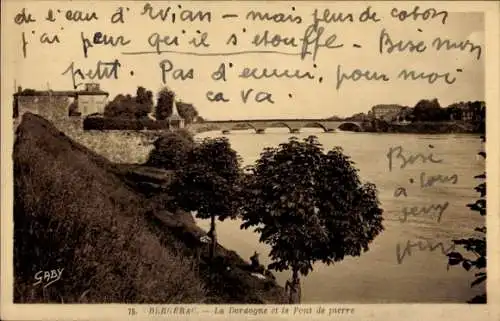 de l'eau d'Arvian - mais peu de coton
j'ai peur qu'il s'étouffe. Bise mon
petit. Pas d'ennui, pour moi
ça va.
Bise
à tous
GABY
75. BERGERAC. - La Dordogne et le Pont de pierre